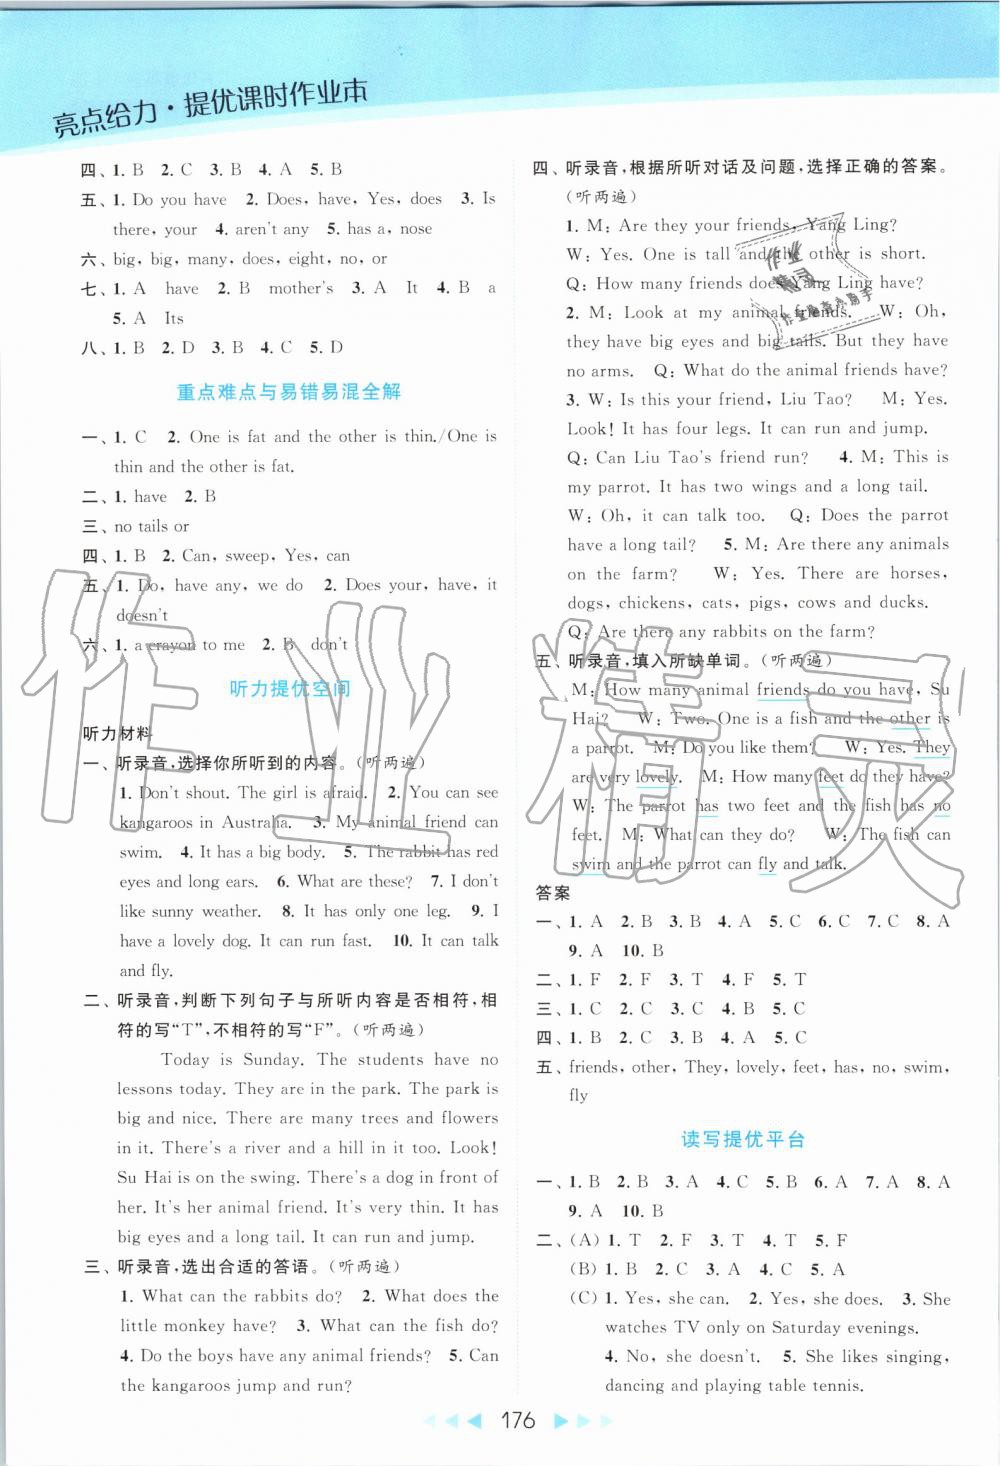 亮点给力·提优课时作业本
四、1. B 2. C 3. B 4. A 5. B
五、1. Do you have 2. Does, have, Yes, does 3. Is
there, your 4. aren't any 5. has a, nose
六、big, big, many, does, eight, no, or
七、1. A have 2. B mother's 3. A It 4. B a
5. A Its
八、1. B 2. D 3. B 4. C 5. D
重点难点与易错易混全解
一、1. C 2. One is fat and the other is thin./One is
thin and the other is fat.
二、1. have 2. B
三、no tails or
四、1. B 2. Can, sweep, Yes, can
五、1. Do, have any, we do 2. Does your, have, it
doesn't
六、1. a crayon to me 2. B don't
听力提优空间
听力材料
一、听录音,选择你所听到的内容。(听两遍)
1. Don't shout. The girl is afraid. 2. You can see
kangaroos in Australia. 3. My animal friend can
swim. 4. It has a big body. 5. The rabbit has red
eyes and long ears. 6. What are these? 7. I don't
like sunny weather. 8. It has only one leg. 9. I
have a lovely dog. It can run fast. 10. It can talk
and fly.
二、听录音,判断下列句子与所听内容是否相符,相
符的写“T”,不相符的写“F”。(听两遍)
Today is Sunday. The students have no
lessons today. They are in the park. The park is
big and nice. There are many trees and flowers
in it. There's a river and a hill in it too. Look!
Su Hai is on the swing. There's a dog in front of
her. It's her animal friend. It's very thin. It has
big eyes and a long tail. It can run and jump.
三、听录音,选出合适的答语。(听两遍)
1. What can the rabbits do? 2. What does the
little monkey have? 3. What can the fish do?
4. Do the boys have any animal friends? 5. Can
the kangaroos jump and run?
四、听录音,根据所听对话及问题,选择正确的答案。
(听两遍)
1. M: Are they your friends, Yang Ling?
W: Yes. One is tall and the other is short.
Q: How many friends does Yang Ling have?
2. M: Look at my animal friends. W: Oh,
they have big eyes and big tails. But they have
no arms. Q: What do the animal friends have?
3. W: Is this your friend, Liu Tao? M: Yes.
Look! It has four legs. It can run and jump.
Q: Can Liu Tao's friend run? 4. M: This is
my parrot. It has two wings and a long tail.
W: Oh, it can talk too. Q: Does the parrot
have a long tail? 5. M: Are there any animals
on the farm? W: Yes. There are horses,
dogs, chickens, cats, pigs, cows and ducks.
Q: Are there any rabbits on the farm?
五、听录音,填入所缺单词。(听两遍)
M: How many animal friends do you have, Su
Hai? W: Two. One is a fish and the other is
a parrot. M: Do you like them? W: Yes. They
are very lovely. M: How many feet do they have?
W: The parrot has two feet and the fish has no
feet. M: What can they do? W: The fish can
swim and the parrot can fly and talk.
答案
一、1. A 2. B 3. B 4. A 5. C 6. C 7. C 8. A
9. A 10. B
二、1. F 2. F 3. T 4. F 5. T
三、1. C 2. C 3. C 4. B 5. C
四、1. B 2. C 3. B 4. A 5. C
五、friends, other, They, lovely, feet, has, no, swim,
fly
读写提优平台
一、1. B 2. B 3. A 4. C 5. B 6. A 7. A 8. A
9. A 10. B
二、(A) 1. T 2. F 3. T 4. T 5. F
(B) 1. B 2. C 3. C 4. A 5. B
(C) 1. Yes, she can. 2. Yes, she does. 3. She
watches TV only on Saturday evenings.
4. No, she doesn't. 5. She likes singing,
dancing and playing table tennis.
176
作业精灵
作业
精灵